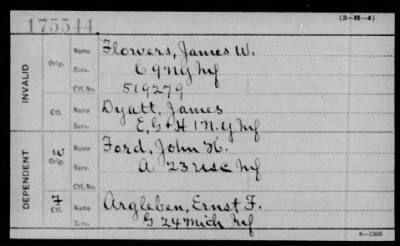 175544
(3-H-4)
INVALID
Orig.
Name Flowers, James W.
Serv. C 9 NY Inf
Ctf. No. 519279
Ctf.
Name Dyatt, James
Serv. E, G & H 1 N.Y Inf
DEPENDENT
W
Orig.
Name Ford, John H.
Serv. A 23 USC Inf
Ctf. No.
F
Ctf.
Name Argleben, Ernst F.
Serv. G 24 Mich Inf